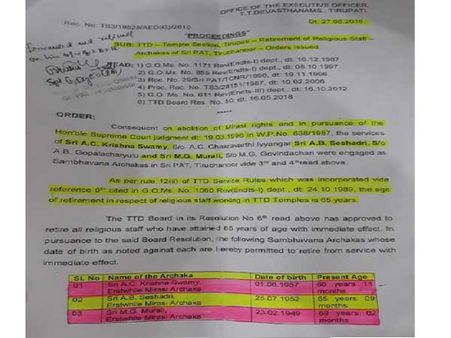 OFFICE OF THE EXECUTIVE OFFICER,
T.T.DEVASTHANAMS, TIRUPATI.
Dt: 27.05.2018
"PROCEEDINGS"
SUB: TTD – Temple Section, Tirupati – Retirement of Religious Staff –
Archakas of Sri PAT, Tiruchanoor – Orders Issued.
READ: 1) G.O.Ms. No. 1171 Rev(Endts-I) dept., dt: 16.12.1987
2) G.O.Ms. No. 855 Rev(Endts-I) dept., dt:
3) Roc. No. PAT/TCNR/1990, dt: 19.11.1996
4) Proc. Roc. No. dt: 10.02.2006
5) G.O. Ms. No. 611 Rev(Endts-III) dept., dt: 16.10.2012
6) TTD Board Res. No. dt: 16.05.2018
ORDER:
Consequent on abolition of Mirasi rights and in pursuance of the
Hon'ble Supreme Court judgment dt: 19.03.1996 in W.P.No. 638/1987, the services
of Sri A.C. Krishna Swamy, S/o. A.C. Chakravarthi Iyyangar Sri A.B. Seshadri, S/o
A.B. Gopalacharyulu and Sri M.G. Murali, S/o M.G. Govindachari were engaged as
Sambhavana Archakas in Sri PAT, Tiruchanoor vide 3rd and 4th read above.
As per rule of TTD Service Rules which was incorporated vide
reference cited in G.O.Ms. No. 1060 Rev(Endts-I) dept., dt: 24.10.1989, the age
of retirement in respect of religious staff working in TTD Temples is 65 years.
The TTD Board in its Resolution No 6th read above has approved to
retire all religious staff who have attained 65 years of age with immediate effect.
In pursuance to the said Board Resolution, the following Sambhavana Archakas whose
date of birth as noted against each are hereby permitted to retire from service with
immediate effect.
Sl. No Name of the Archaka Date of birth Present Age
01 Sri A.C. Krishna Swamy, Erstwhile Mirasi Archaka 01.06.1957 11 months
02 Sri A.B. Seshadri, Erstwhile Mirasi Archaka 25.07.1952 65 years 09 months
03 Sri M.G. Murali, Erstwhile Mirasi Archaka 23.02.1949 69 years 02 months